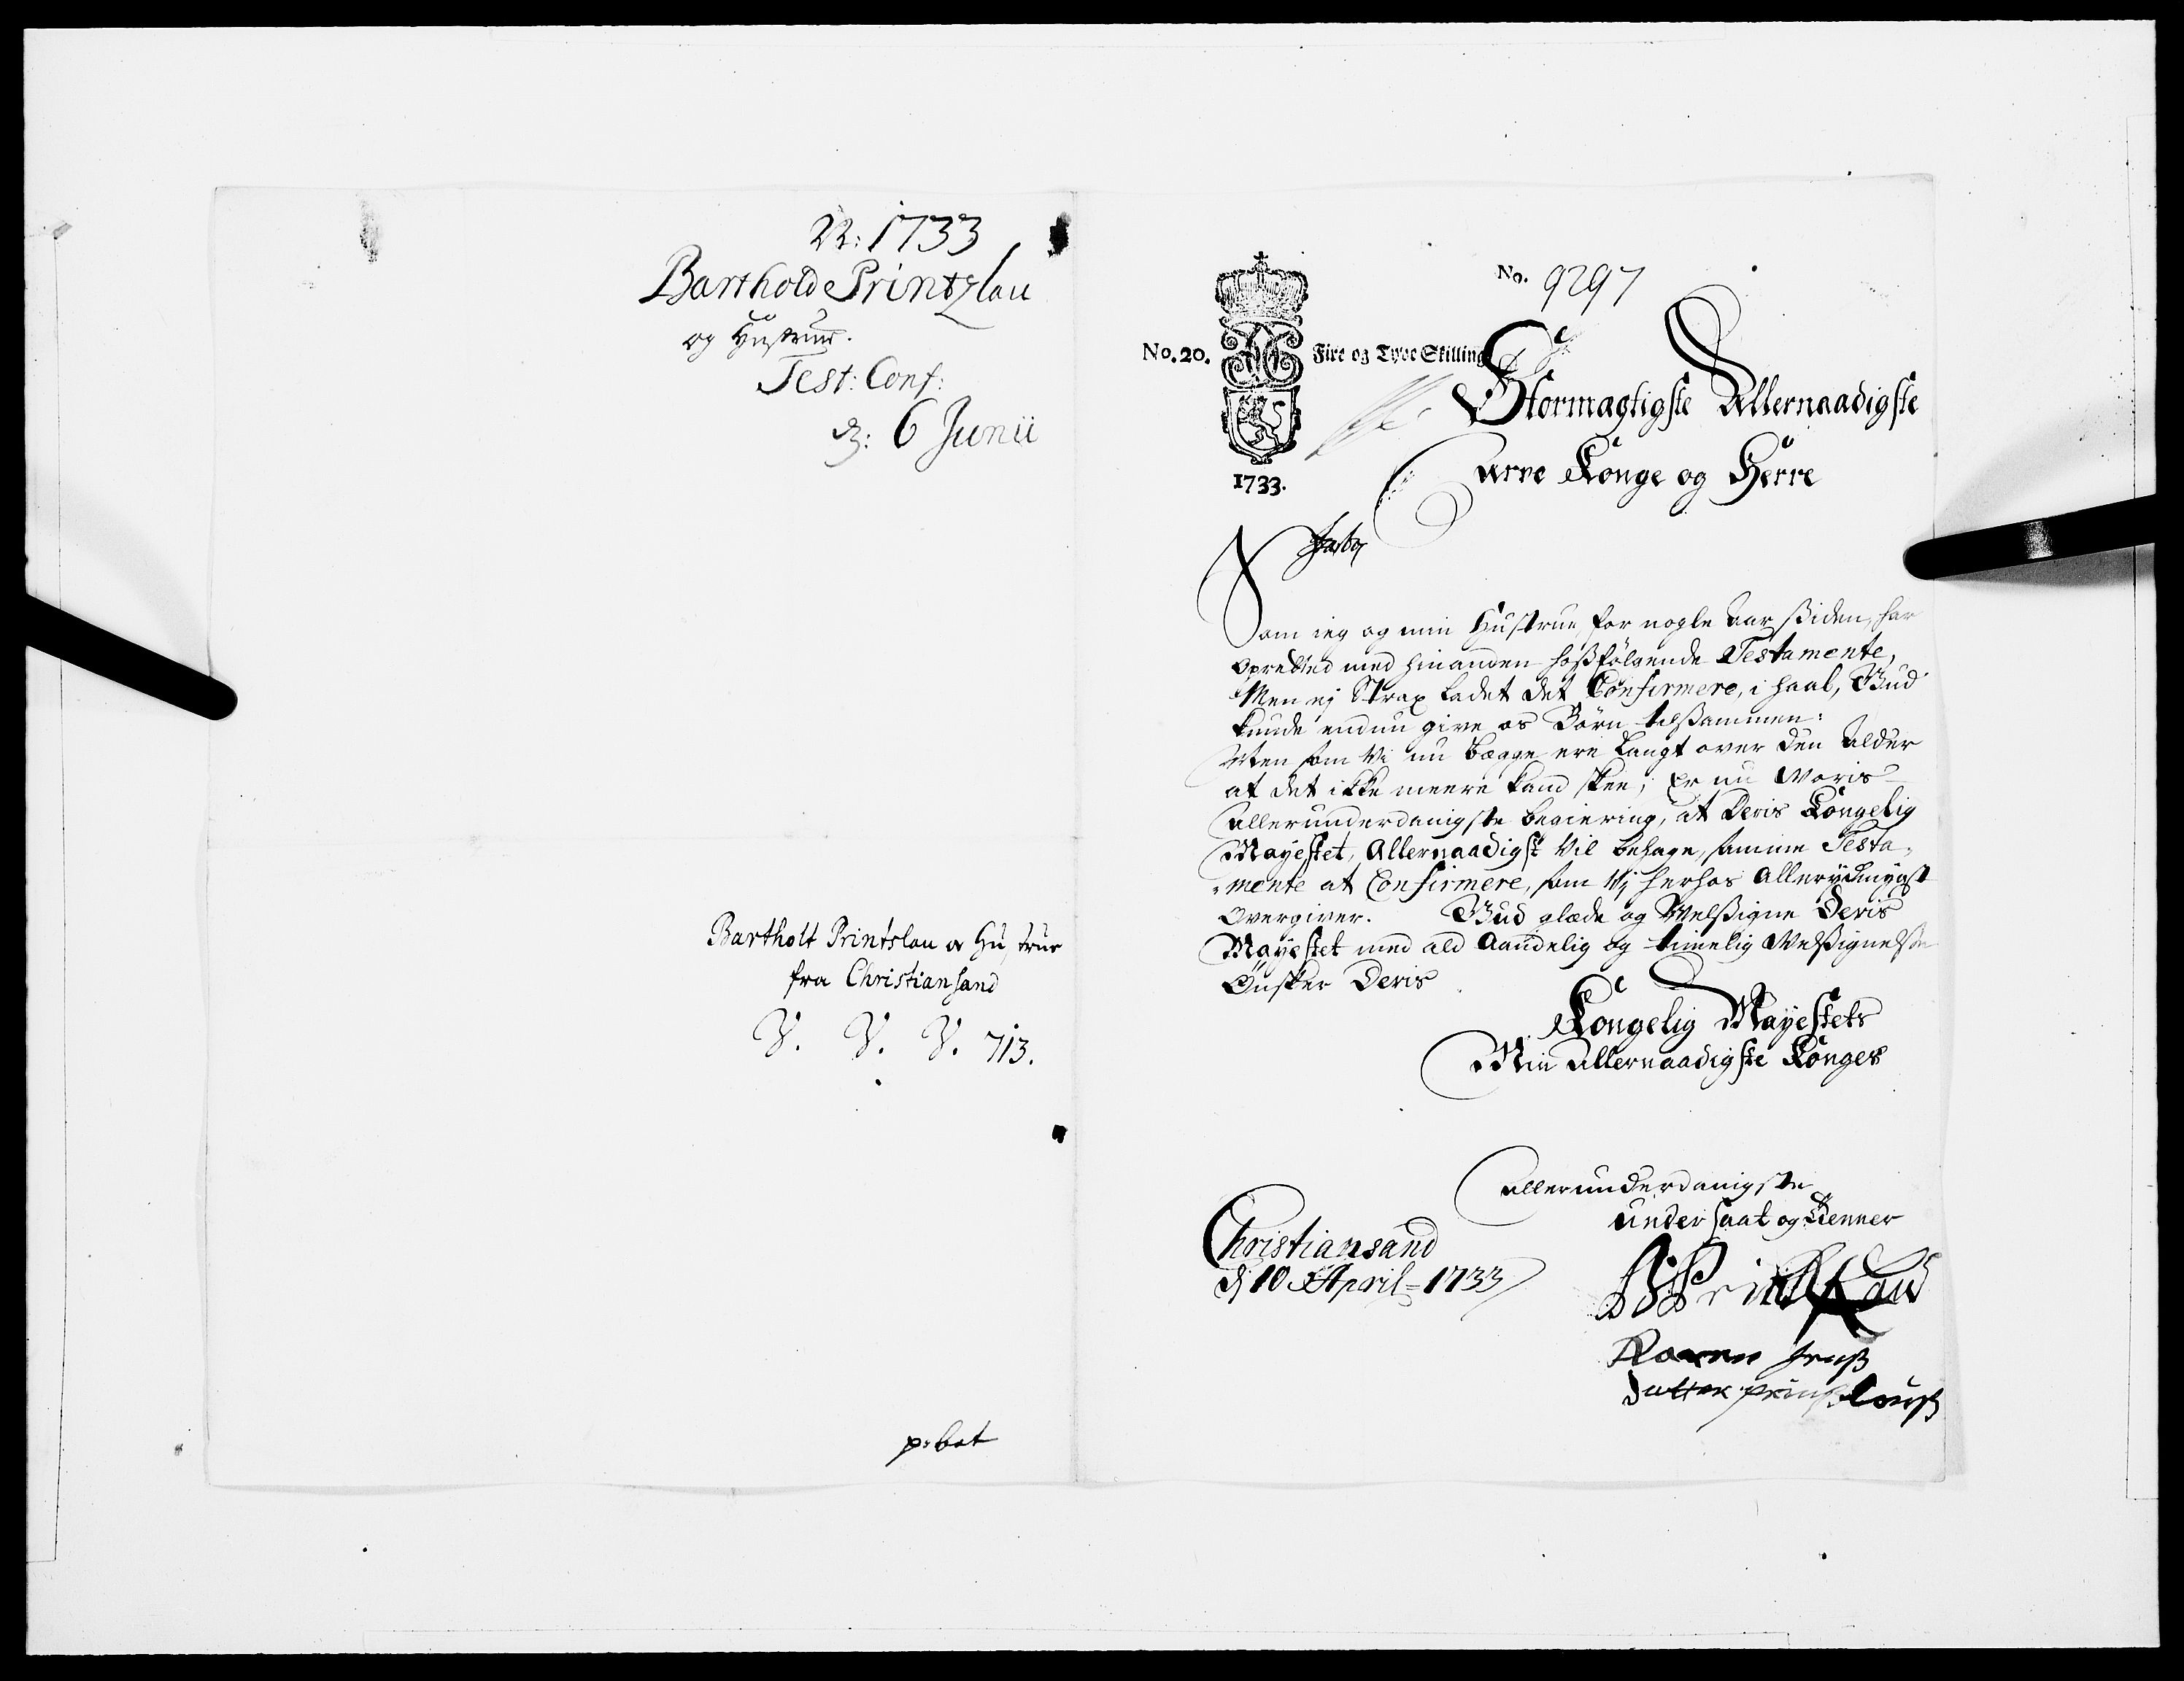 22: 1733
Barthold Printzlau
og Hustrue.
Test: Conf:
d: 6 Junii
Bartholt Printslau og Hustrue
fra Christiansand
V. V. V. 713.
No. 9297
No. 20.
Fire og Tyve Skilling
1733.
Stormagtigste Allernaadigste
Arve Konge og Herre
Som ieg og min Hustrue for nogle Aar ßiden, har
opretted med hinanden hoßfølgende Testamente,
Men ej Strax ladet det Confirmere, i haab, Gud
kunde endnu give os Børn tilsammen:
Men som Vi nu begge ere langt over den Alder
at det ikke meere kand skee; Er nu Woris
Allerunderdanigste begiering, at Deris Kongelig
Mayestet, Allernaadigst Vil behage, samme Testa-
-mente at Confirmere, som Vj herhos Allerydmygst
Overgiver. Gud glæde og Welßigne Deris
Mayestet med ald Aandelig og timelig Welßignelse
Ønsker Deris
Kongelig Mayestets
Min Allernaadigste Konges
Allerunderdanigste
Undersaat og Tienner
Christiansand
dj 10 April = 1733
B Printzlau
Karen Jenß
datter Printzlouß